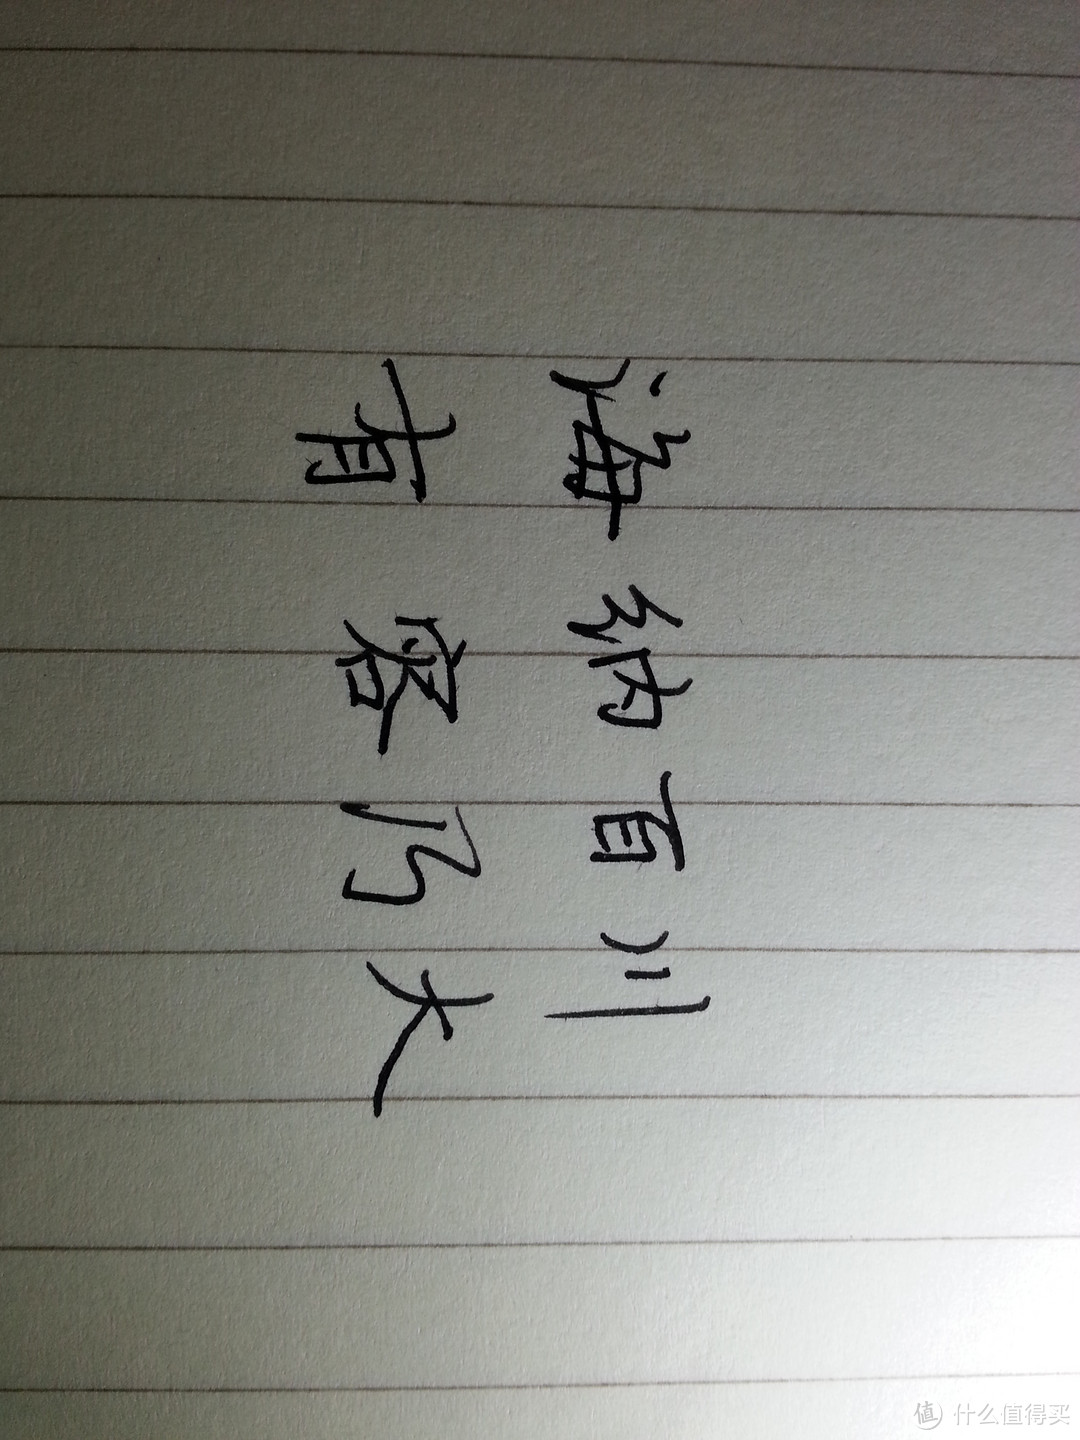 海纳百川
有容乃大
值 什么值得买